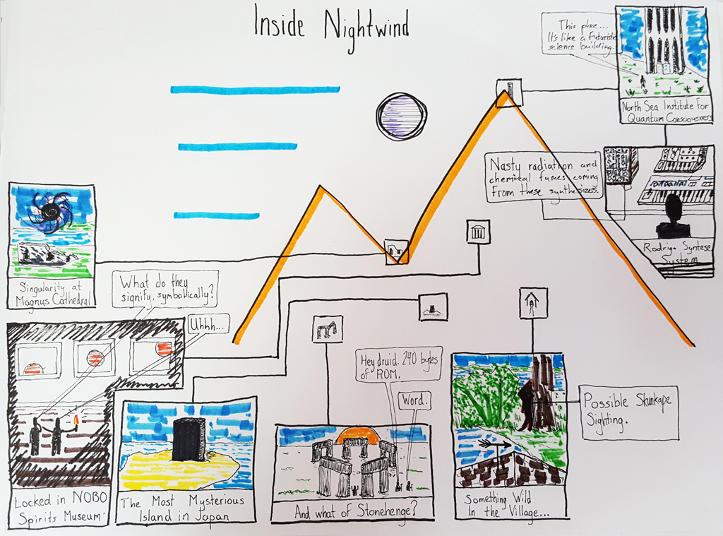 Inside Nightwind
This place...
It's like a futuristic
science building.
North Sea Institute For
Quantum Consciousness
Nasty radiation and
chemical fumes coming
From these synthesizers.
Rodrigo Syntese
System
Singularity at
Magnus Cathedral
What do they
signify, symbolically?
Uhhh...
Locked in NOBO
Spirits Museum
The Most Mysterious
Island in Japan
Hey druid. 240 bytes
of ROM.
Word.
And what of Stonehenge?
Possible Skunkape
Sighting.
Something Wild
In the Village...